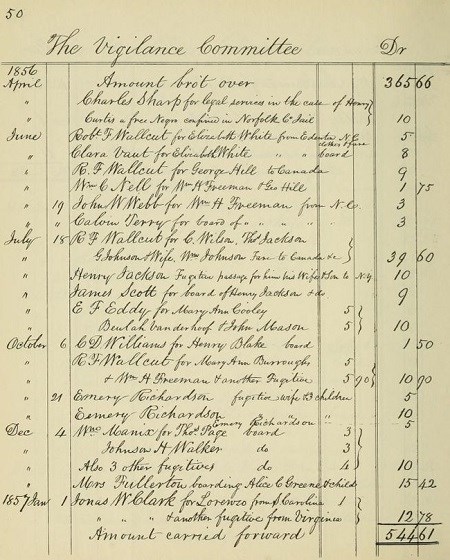 50
The Vigilance Committee Dr
1856
April Amount brôt over 365 66
" Charles Sharp for legal services in the case of Henry
" Curtis a free Negro confined in Norfolk Co Jail 10
June Robt F Wallcut for Elizabeth White from Edenton N.C. 5
" Clara Vaut for Elizabeth White " " clothes & fare board 8
" R. F Wallcut for George Hell to Canada 9
" Wm C Nell for Wm H Freeman & Geo Hill 1 75
" 19 John W Webb for Wm H Freeman from N.Ca. 3
" " Calvin Terry for board of " " " " 3
July 18 R F Wallcut for C. Wilson, Thos Jackson
" G Johnson & Wife, Wm Johnson Fare to Canada &c 39 60
" Henry Jackson Fugitive passage for him his Wife & Son to N.Y. 10
" James Scott for board of Henry Jackson & do 9
" E F Eddy for Mary Ann Cooley 5
" Beulah Vanderhoof & John Mason 5 10
October 6 C D Williams for Henry Blake board 1 50
" R F Wallcut for Mary Ann Burroughs 5
" & Wm H Freeman & another Fugitive 5 90 10 90
" 21 Emery Richardson fugitive wife & 3 children 5
" Eemery Richardson 10
Emery Richardson " " 5
Dec 4 Wm Manix for Thos Page board 3
" Johnson H Walker do 3
" Also 3 other fugitives do 4 10
" Mrs Fullerton boarding Alice C Greene & child 15 42
1857 Jan 1 Jonas W Clark for Lorenzo from S Carolina 1
" " " & another fugitive from Virginia 12 78
Amount carried forward 544 61